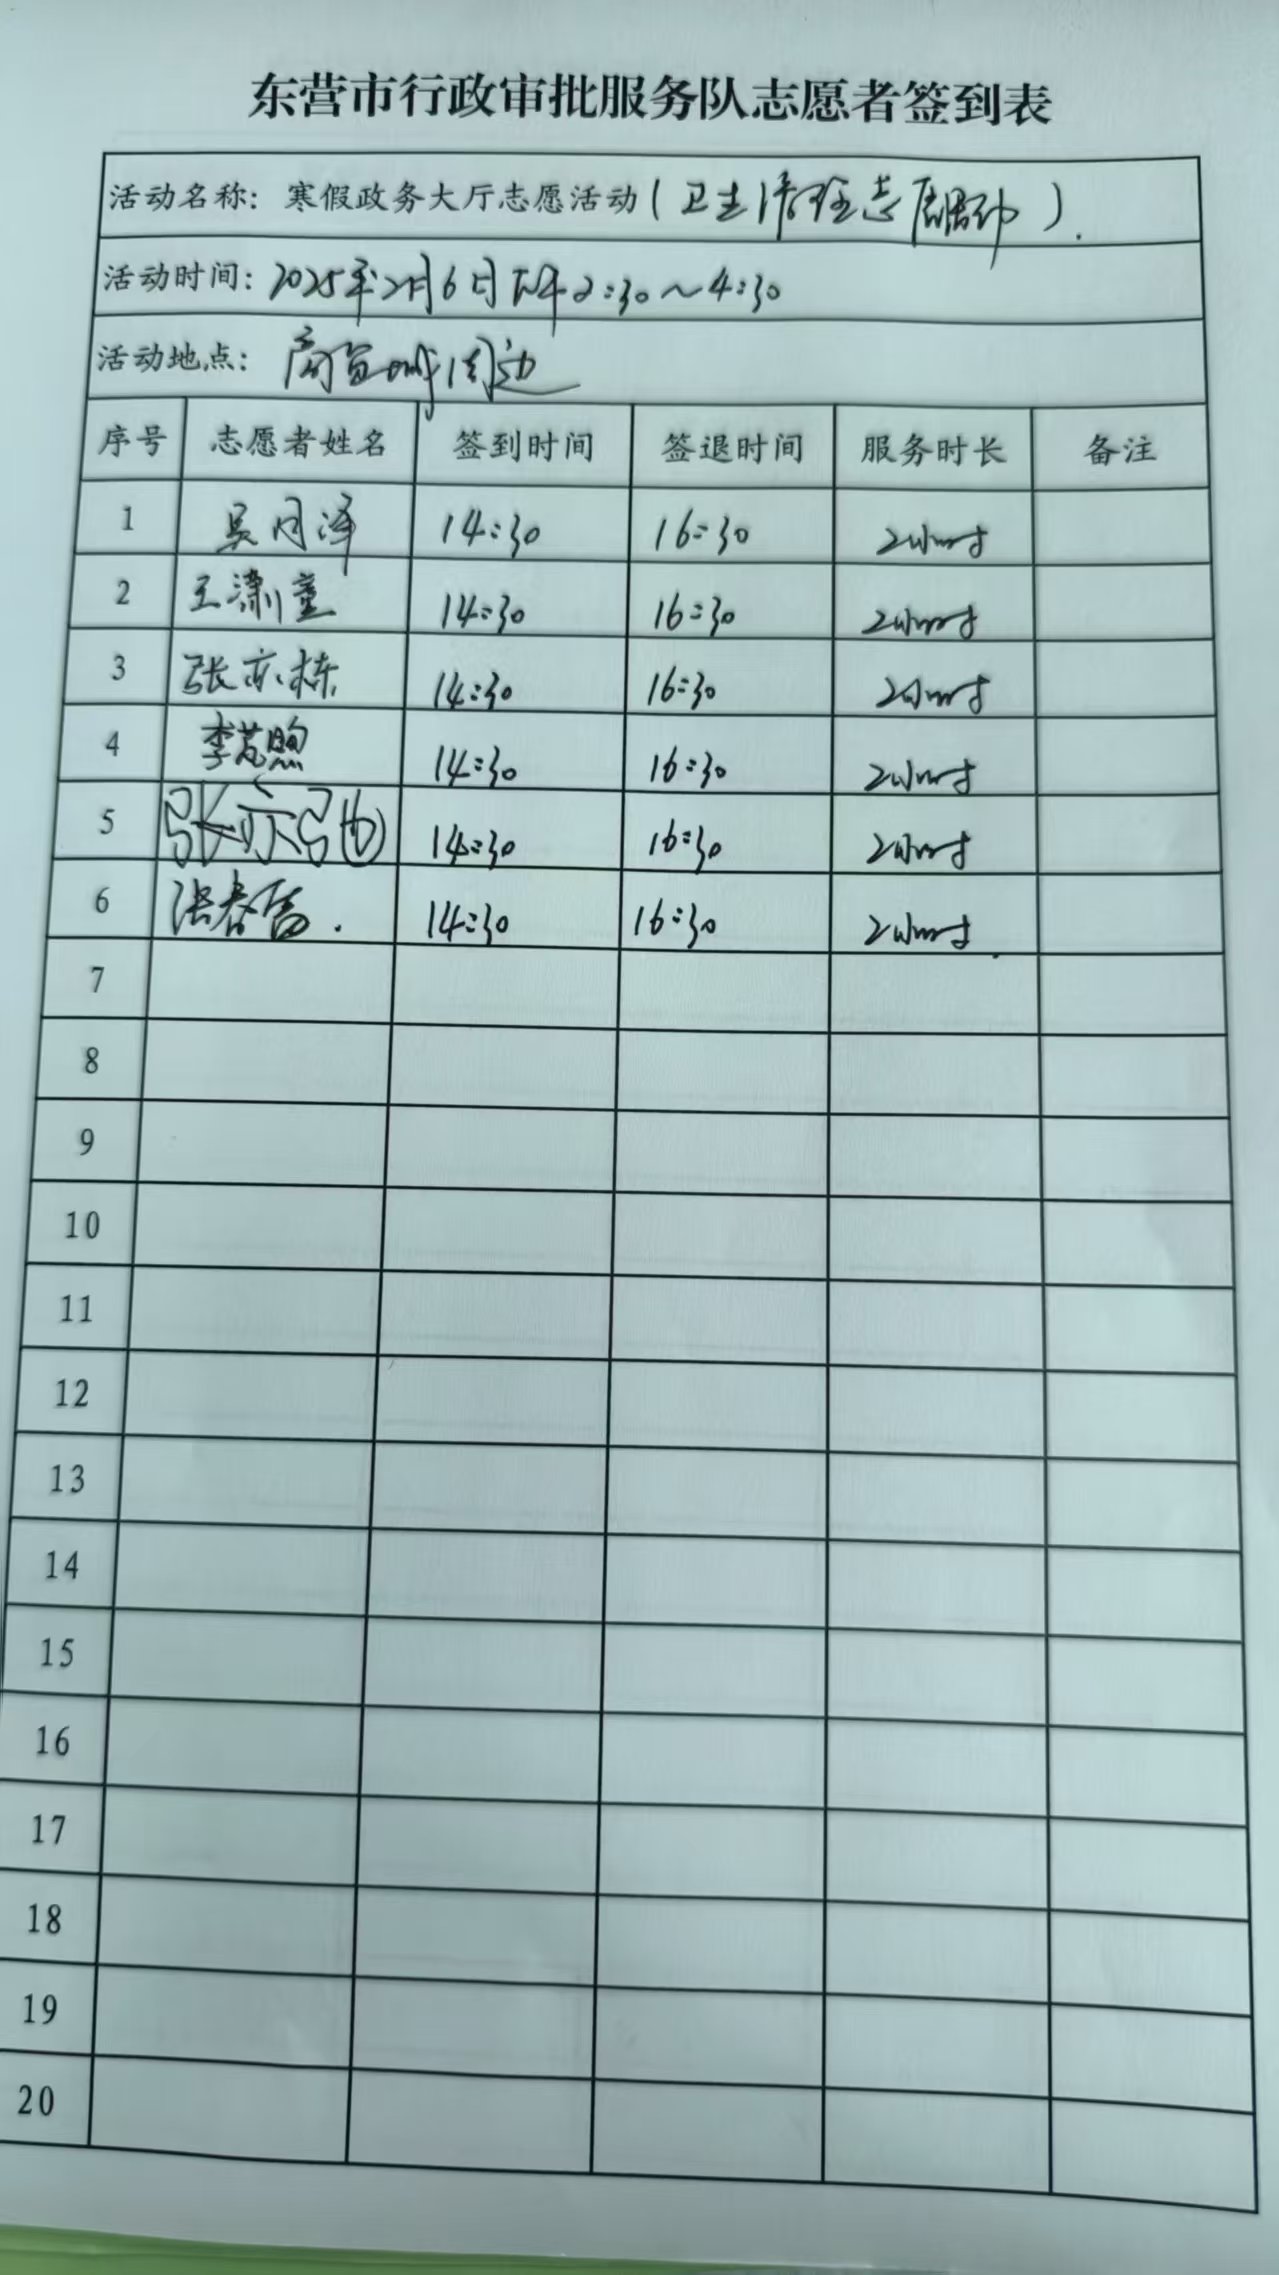 东营市行政审批服务队志愿者签到表
活动名称：寒假政务大厅志愿活动（卫生清理志愿活动）.
活动时间：2025年2月6日下午2:30～4:30
活动地点：商贸城周边
序号 志愿者姓名 签到时间 签退时间 服务时长 备注
1 吴同泽 14:30 16:30 2小时
2 王潇童 14:30 16:30 2小时
3 张亦栋 14:30 16:30 2小时
4 李 煦 14:30 16:30 2小时
5 张亦弛 14:30 16:30 2小时
6 张春 14:30 16:30 2小时
7
8
9
10
11
12
13
14
15
16
17
18
19
20